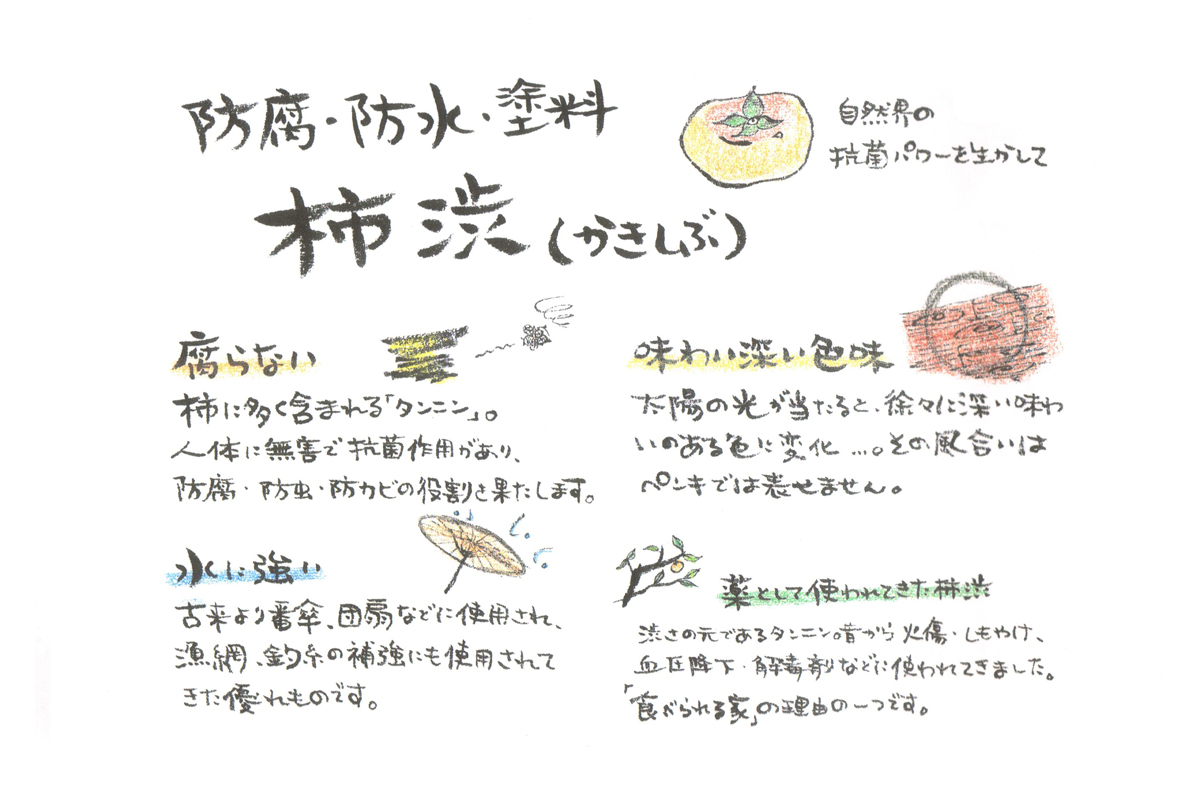 防腐・防水・塗料
自然界の
抗菌パワーを生かして
柿渋(かきしぶ)
腐らない
柿に多く含まれる「タンニン」。
人体に無害で抗菌作用があり、
防腐・防虫・防カビの役割を果たします。
味わい深い色味
太陽の光が当たると、徐々に深い味わ
いのある色に変化…。その風合いは
ペンキでは表せません。
水に強い
古来より番傘、団扇などに使用され、
漁網、釣糸の補強にも使用されて
きた優れものです。
薬として使われてきた柿渋
渋さの元であるタンニン。昔から火傷・しもやけ、
血圧降下・解毒剤などに使われてきました。
「食べられる家」の理由の一つです。